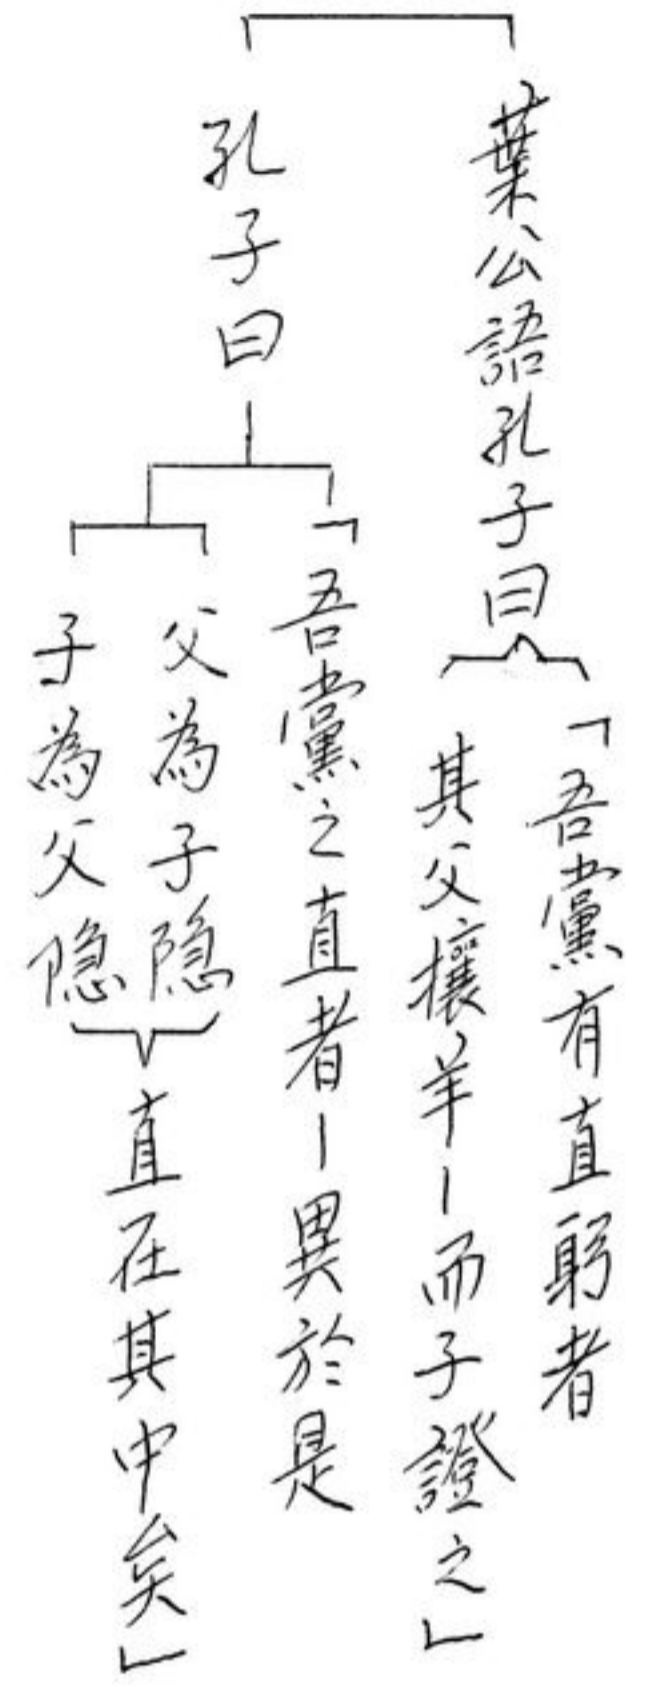 葉公語孔子曰
「吾黨有直躬者
其父攘羊－而子證之」
孔子曰
「吾黨之直者－異於是
父為子隱
子為父隱
直在其中矣」